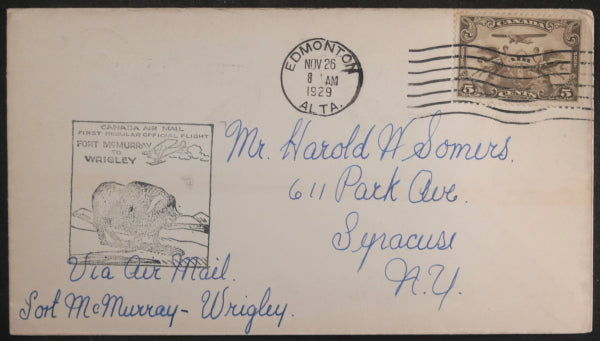 EDMONTON
NOV 26
8 AM
1929
ALTA.
CANADA
AIR
5 CENTS 5
CANADA AIR MAIL
FIRST REGULAR OFFICIAL FLIGHT
FORT McMURRAY
TO
WRIGLEY
Mr. Harold W Somers.
611 Park Ave.
Syracuse
N.Y.
Via Air Mail.
Fort McMurray - Wrigley.